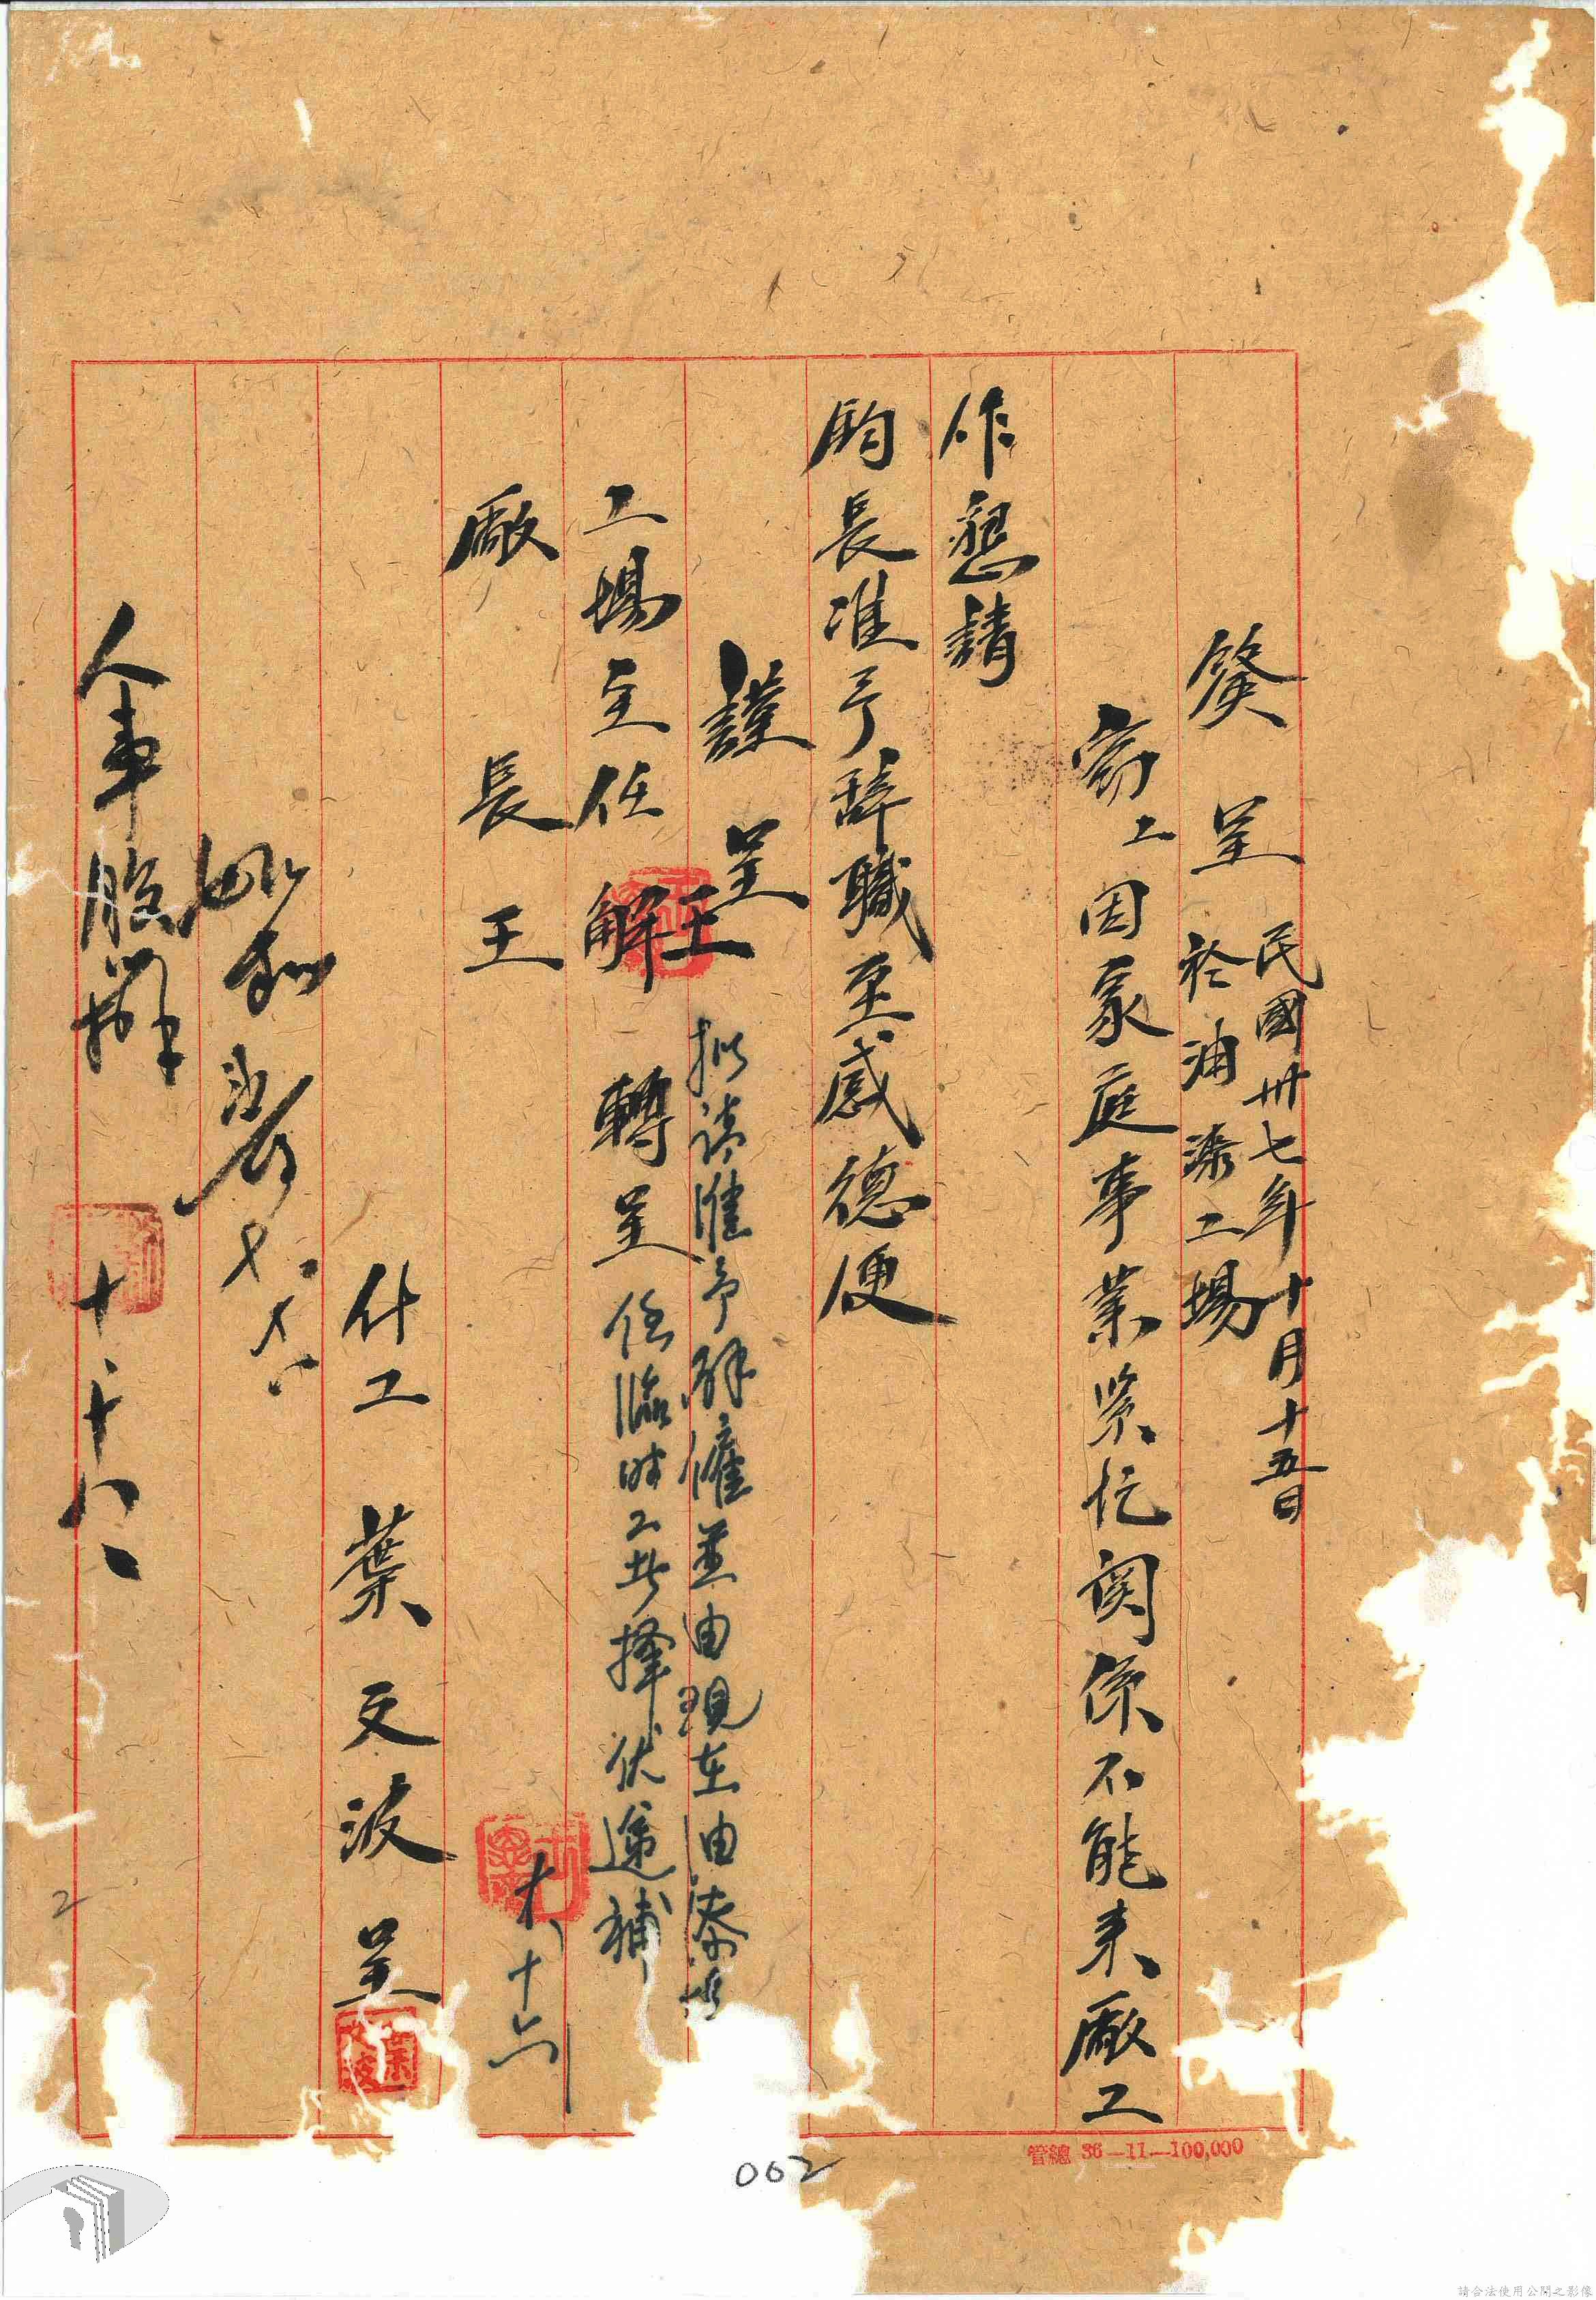 簽呈 民國卅七年十月十五日
於油漆工場
竊工因家庭事業緊忙関係不能来廠工
作懇請
鈞長准予辞職至感德便
謹呈
工場主任 解 王 轉呈
廠長 王
擬請准予解僱並由現在油漆場
任臨時工 擇優遞補
十十六
什工 葉文波 呈
照
人事股辦
十、十八、
管總 36—11—100,000
002
2
請合法使用公開之影像